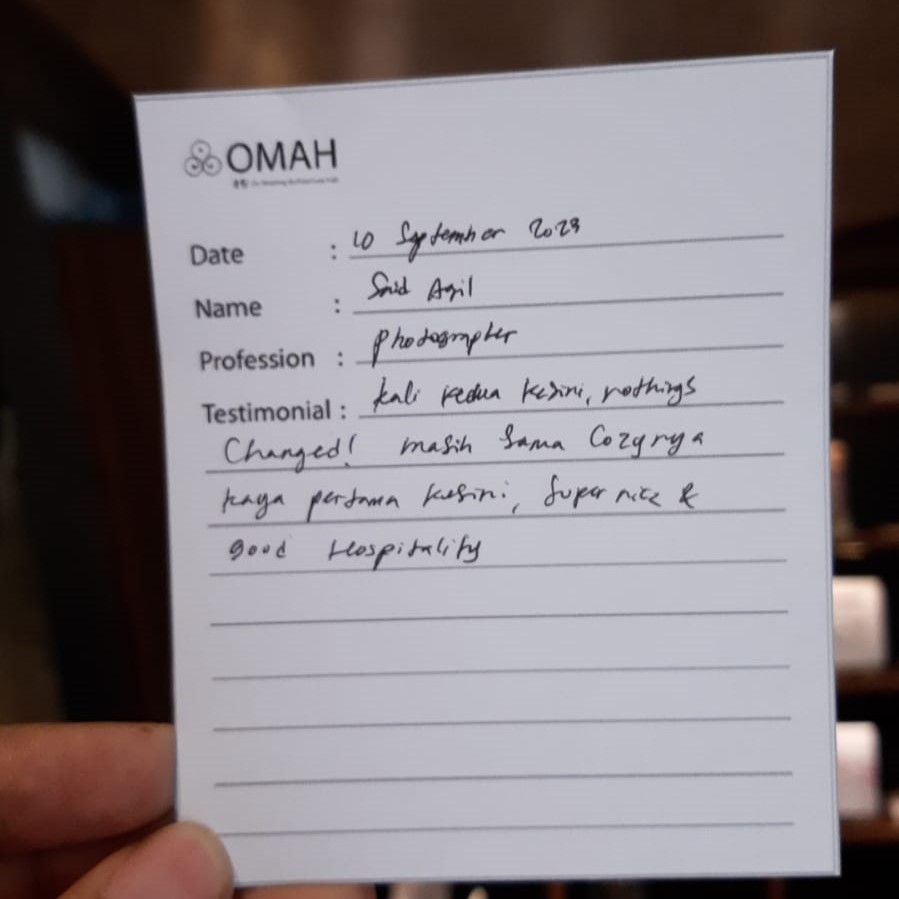 OMAH
Date : 10 September 2023
Name : Said Agil
Profession : Photographer
Testimonial : kali kedua kesini, nothings
Changed! masih sama Cozynya
kaya pertama kesini, super nice &
good Hospitality